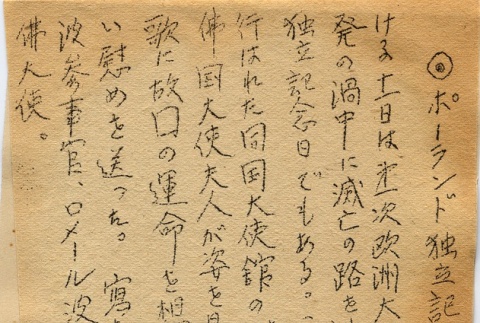 ◎ポーランド独立記
ける十一日は第一次欧洲大
発の渦中に滅亡の路を
独立記念日でもある。
行はれた同国大使館の
佛国大使夫人が姿を見
歌に故国の運命を想
い慰めを送った。寫
波参事官、ロメール波
佛大使。